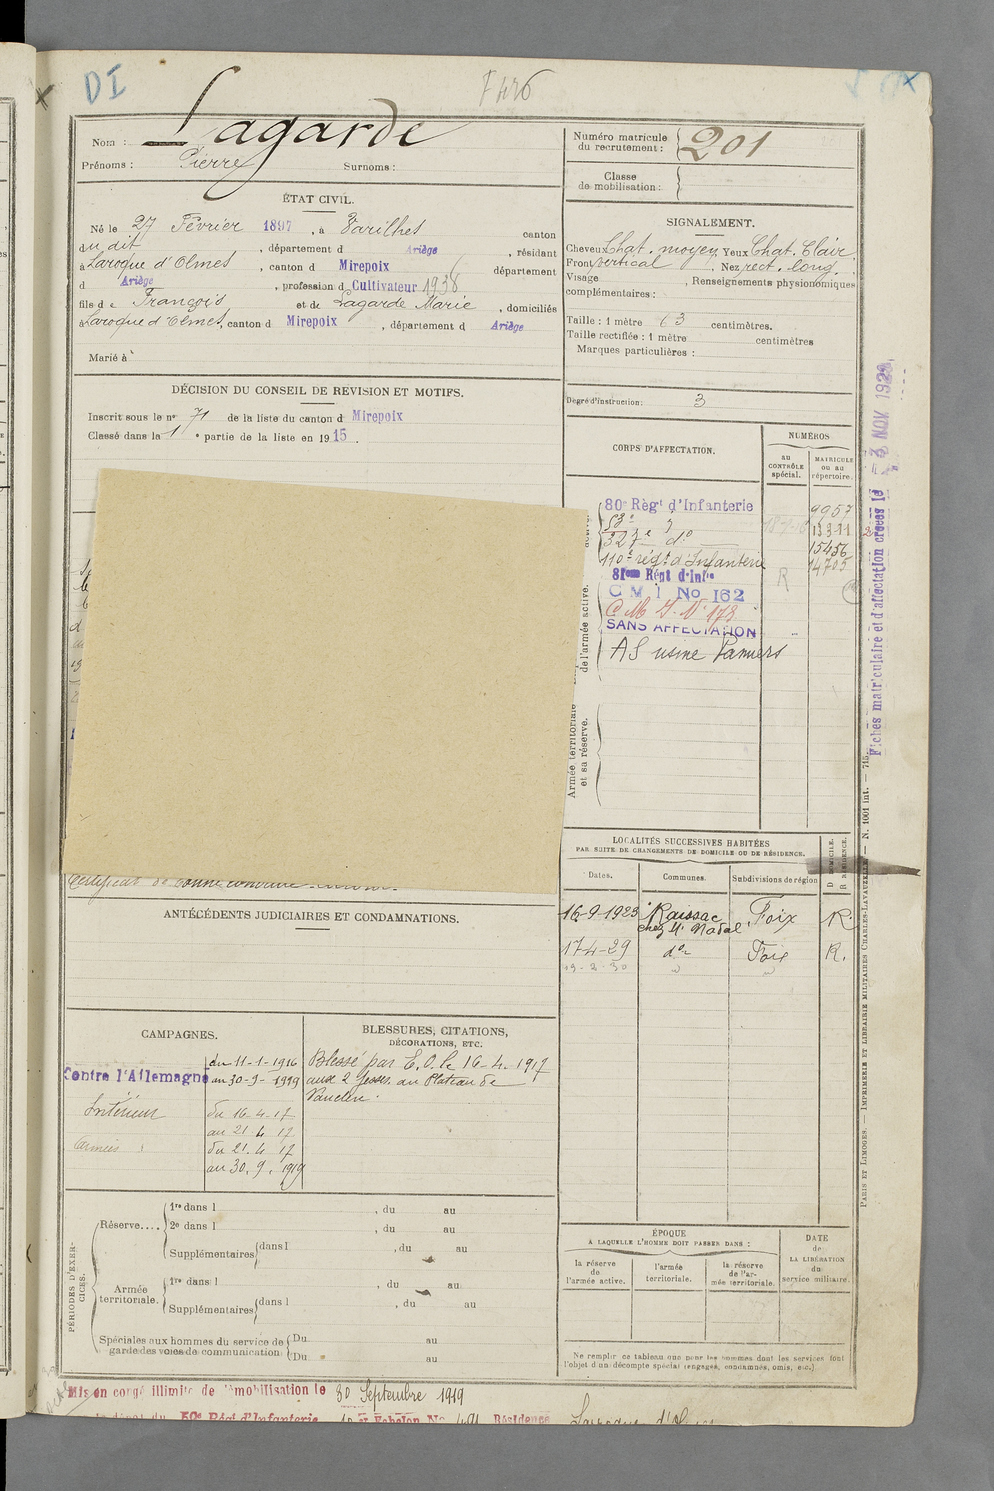 DI
F 426
Nom : Lagarde
Prénoms : Pierre Surnoms :
Numéro matricule du recrutement : 201
Classe de mobilisation :
ÉTAT CIVIL.
Né le 27 Février 1897, à Varilhes canton
du dit, département d Ariège, résidant
à Laroque d'Olmes, canton d Mirepoix département
d Ariège, profession d Cultivateur 1938
fils de François et de Lagarde Marie, domiciliés
à Laroque d'Olmes, canton d Mirepoix, département d Ariège
Marié à
SIGNALEMENT.
Cheveux Chat. moyen Yeux Chat. Clair
Front vertical. Nez rect. long.
Visage, Renseignements physionomiques
complémentaires :
Taille : 1 mètre 63 centimètres.
Taille rectifiée : 1 mètre centimètres
Marques particulières :
Degré d'instruction : 3
DÉCISION DU CONSEIL DE REVISION ET MOTIFS.
Inscrit sous le n° 71 de la liste du canton d Mirepoix
Classé dans la 1e partie de la liste en 1915.
CORPS D'AFFECTATION.
NUMÉROS
au CONTRÔLE spécial.
MATRICULE ou au répertoire.
80e Régt d'Infanterie 9957
53e
327e do 15456
110e régt d'Infanterie 14705
81eme Régt d'Infie
C M I No 162
C M I No 178
SANS AFFECTATION
AS usine Pamiers
R
de l'armée active.
Armée territoriale et sa réserve.
Fiches matriculaire et d'affectation créées le 3 NOV 192
LOCALITÉS SUCCESSIVES HABITÉES
PAR SUITE DE CHANGEMENTS DE DOMICILE OU DE RÉSIDENCE.
Dates. Communes. Subdivisions de région D DOMICILE. R RÉSIDENCE.
16-9-1923 Raissac Foix R.
chez Mr Nadal
17-4-29 do Foix R.
19-2-30
Certificat de bonne conduite
ANTÉCÉDENTS JUDICIAIRES ET CONDAMNATIONS.
CAMPAGNES.
Contre l'Allemagne du 11-1-1916
au 30-9-1919
Intérieur du 16-4-17
au 21 4 17
Armées du 21.4.17
au 30.9.1919
BLESSURES, CITATIONS,
DÉCORATIONS, ETC.
Blessé par E.O. le 16-4-1917
aux 2 fesses au Plateau de
Vauclerc.
PÉRIODES D'EXERCICES.
Réserve.... 1re dans l , du au
2e dans l , du au
Supplémentaires dans l , du au
Armée territoriale. 1re dans l , du au
Supplémentaires dans l , du au
Spéciales aux hommes du service de garde des voies de communication : Du au
Du au
ÉPOQUE
À LAQUELLE L'HOMME DOIT PASSER DANS :
la réserve de l'armée active.
l'armée territoriale.
la réserve de l'armée territoriale.
DATE de LA LIBÉRATION du service militaire.
Ne remplir ce tableau que pour les hommes dont les services font
l'objet d'un décompte spécial (engagés, condamnés, omis, etc.)
PARIS ET LIMOGES. — IMPRIMERIE ET LIBRAIRIE MILITAIRES CHARLES-LAVAUZELLE. — N. 1001 int. — 715.
Mis en congé illimité de démobilisation le 30 Septembre 1919
dépôt du 59e Régt d'Infanterie Echelon No 491 Résidence Laroque d'Olmes